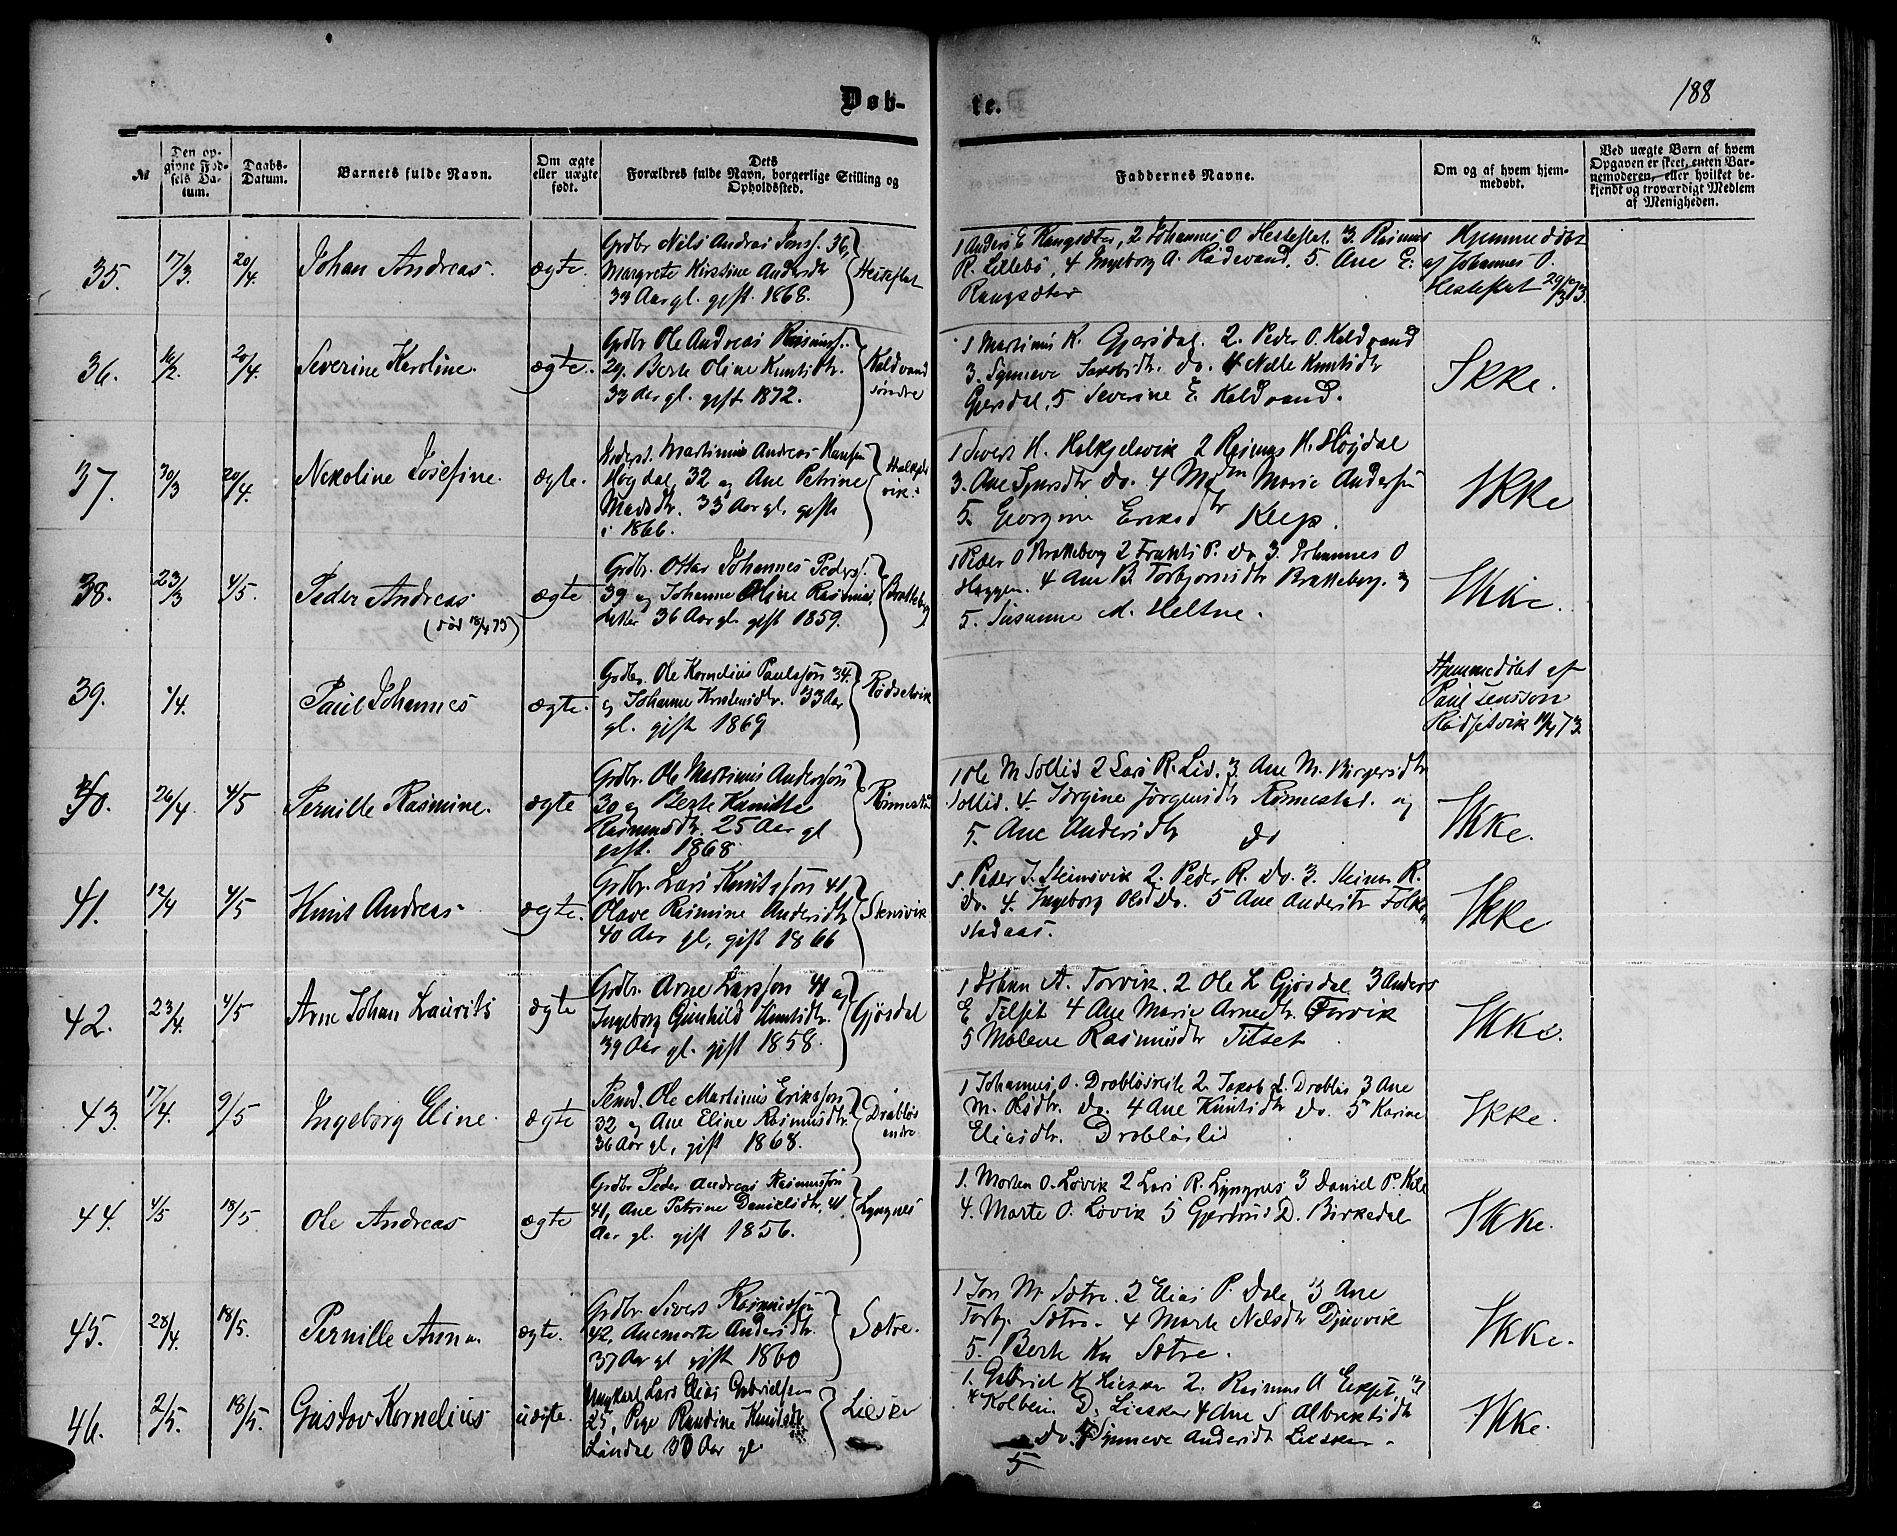 188
Døb- te.
№ Den opgivne Fødsels Datum. Daabs-Datum. Barnets fulde Navn. Om ægte eller uægte født. Dets Forældres fulde Navn, borgerlige Stilling og Opholdssted. Faddernes Navne. Om og af hvem hjemmedøbt. Ved uægte Børn af hvem Opgaven er skeet, enten Barnemoderen, eller hvilket bekjendt og troværdigt Medlem af Menigheden.
35. 17/3. 20/4. Johan Andreas. ægte.
Grdbr Nils Andreas Jonss. 36,
Margrete Kirstine Andersdtr
33 Aar gl. gift. 1868. Hesteflat
1 Anders E Rangsæter, 2 Johannes O. Hesteflat. 3. Rasmus
R. Lillebø, 4 Ingeborg A. Rødevand, 5 Ane E.
Rangsæter
Hjemmedøbt
af Johannes O.
Hesteflat 29/3 73.
36. 16/2. 20/4. Severine Karoline. ægte.
Grdbr Ole Andreas Rasmuss.
29. Berte Oline Knutsdtr.
33 Aar gl. gift 1872. Koldvand søndre
1 Martinus K. Gjersdal. 2. Peder O. Koldvand
3. Synneve Jakobsdtr. do. 4 Nille Knutsdtr
Gjersdal, 5 Severine E. Koldvand.
Ikke.
37. 30/3 20/4. Nekoline Josefine. ægte.
Martinus Andreas Hansen
Høgdal, 32 og Ane Petrine
Madsdtr. 33 Aar gl, gifte
i 1866.
1 Sivert H. Halkjelsvik 2 Rasmus H. Høydal
3. Ane do. 4 Marie Andersen
5. Georgine Eriksdtr
Ikke
38. 23/3 4/5. Peder Andreas ægte
(død 18/4 75)
Grdbr. Ottar Johannes Peders.
39 og Johanne Oline Rasmus-
datter 36 Aar gl. gift 1859. Bratteberg
1 Peder O Bratteberg 2 P. do 3. Johannes O
4 Ane B. Torbjørnsdtr Bratteberg. og
5. Susanne M. Heltne.
Ikke.
39. 4/4. Paul Johannes ægte.
Grdbr. Ole Kornelius Paulsson 34.
og Johanne Kristensdtr. 33 Aar
gl. gift 1869 Rødsetvik
Hjemmedøbt af
Paul Jensson
Rødsetvik 73.
40. 26/4. 4/5 Pernille Rasmine. ægte
Grdbr. Ole Martinus Andersson
30 og Berte Knudtte
Rasmusdtr. 25 Aar gl
gift. 1868.
1 Ole M Sollid 2 Lars R. Lid. 3. Ane M. Birgersdtr
Sollid. 4. Jørgine Jørgensdtr Rønnestad. og
5. Ane Andersdtr do
Ikke.
41. 12/4 4/5 Knut Andreas ægte.
Grdbr. Lars Knutsson 41,
Olave Rasmine Andersdtr
40 Aar gl, gift 1866 Stensvik
1. Peder J. Steinsvik 2. Peder R. do. 3. Steinar R.
do. 4. Ingeborg Olsd do. 5 Ane Andersdtr Folke-
stadaas.
Ikke
42. 23/4. 4/5 Arne Johan Laurits ægte
Grdbr. Arne Larsson 41 og
Ingeborg Gunhild Knutsdtr.
39 Aar gl. gift 1858. Gjøsdal
1 Johan A. Torvik. 2 Ole L Gjøsdal 3 Anders
E Tilset 4 Ane Marie Arnedtr Torvik
5 Malene Rasmusdtr Tilset
Ikke.
43. 17/4. 9/5 Ingeborg Eline. ægte
Ole Martinus Eriksson
32 og Ane Eline Rasmusdtr
36 Aar gl, gift 1868. Drabløs
1 Johannes O. 2. Jakob L. Drabløs 3 Ane
M. do. 4 Ane Knutsdtr do. 5 Karine
Eliasdtr. Drobløslid
Ikke.
44. 4/5 18/5. Ole Andreas ægte
Grdbr Peder Andreas Rasmusson
41, Ane Petrine Danielsdtr, 41.
Aar gl. gift 1856. Lyngnes
1. Morten O. Løvik 2 Lars R. Lyngnes 3 Daniel P.
4. Marte O. Løvik 5 Gjertrud D. Birkedal
Ikke.
45. 28/4. 18/5. Pernille Anna. ægte.
Grdbr. Sivert Rasmusson
42. Anemarte Andersdtr.
37 Aar gl gift 1860 Sætre.
1 Jon M. Sætre. 2 Elias P. Dale 3 Ane
Torbj. Sætre. 4 Marte Nilsdtr Djuvvik
5. Berte Kn Sætre.
Ikke.
46. 2/5. 18/5. Gustav Kornelius uægte.
Ungkarl Lars Elias Gabrielsen
25, Pige Randine Knutsdtr
30 Aar gl.
1. Gabriel K 2. Rasmus A 3
Kolben D. 4 Ane S Albrektsdtr
do. Synneve Andersdt
5
Ikke.